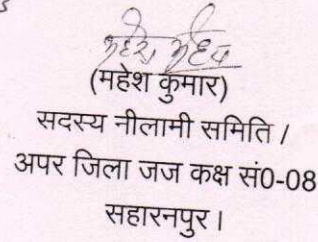 (महेश कुमार)
सदस्य नीलामी समिति /
अपर जिला जज कक्ष सं0-08
सहारनपुर।